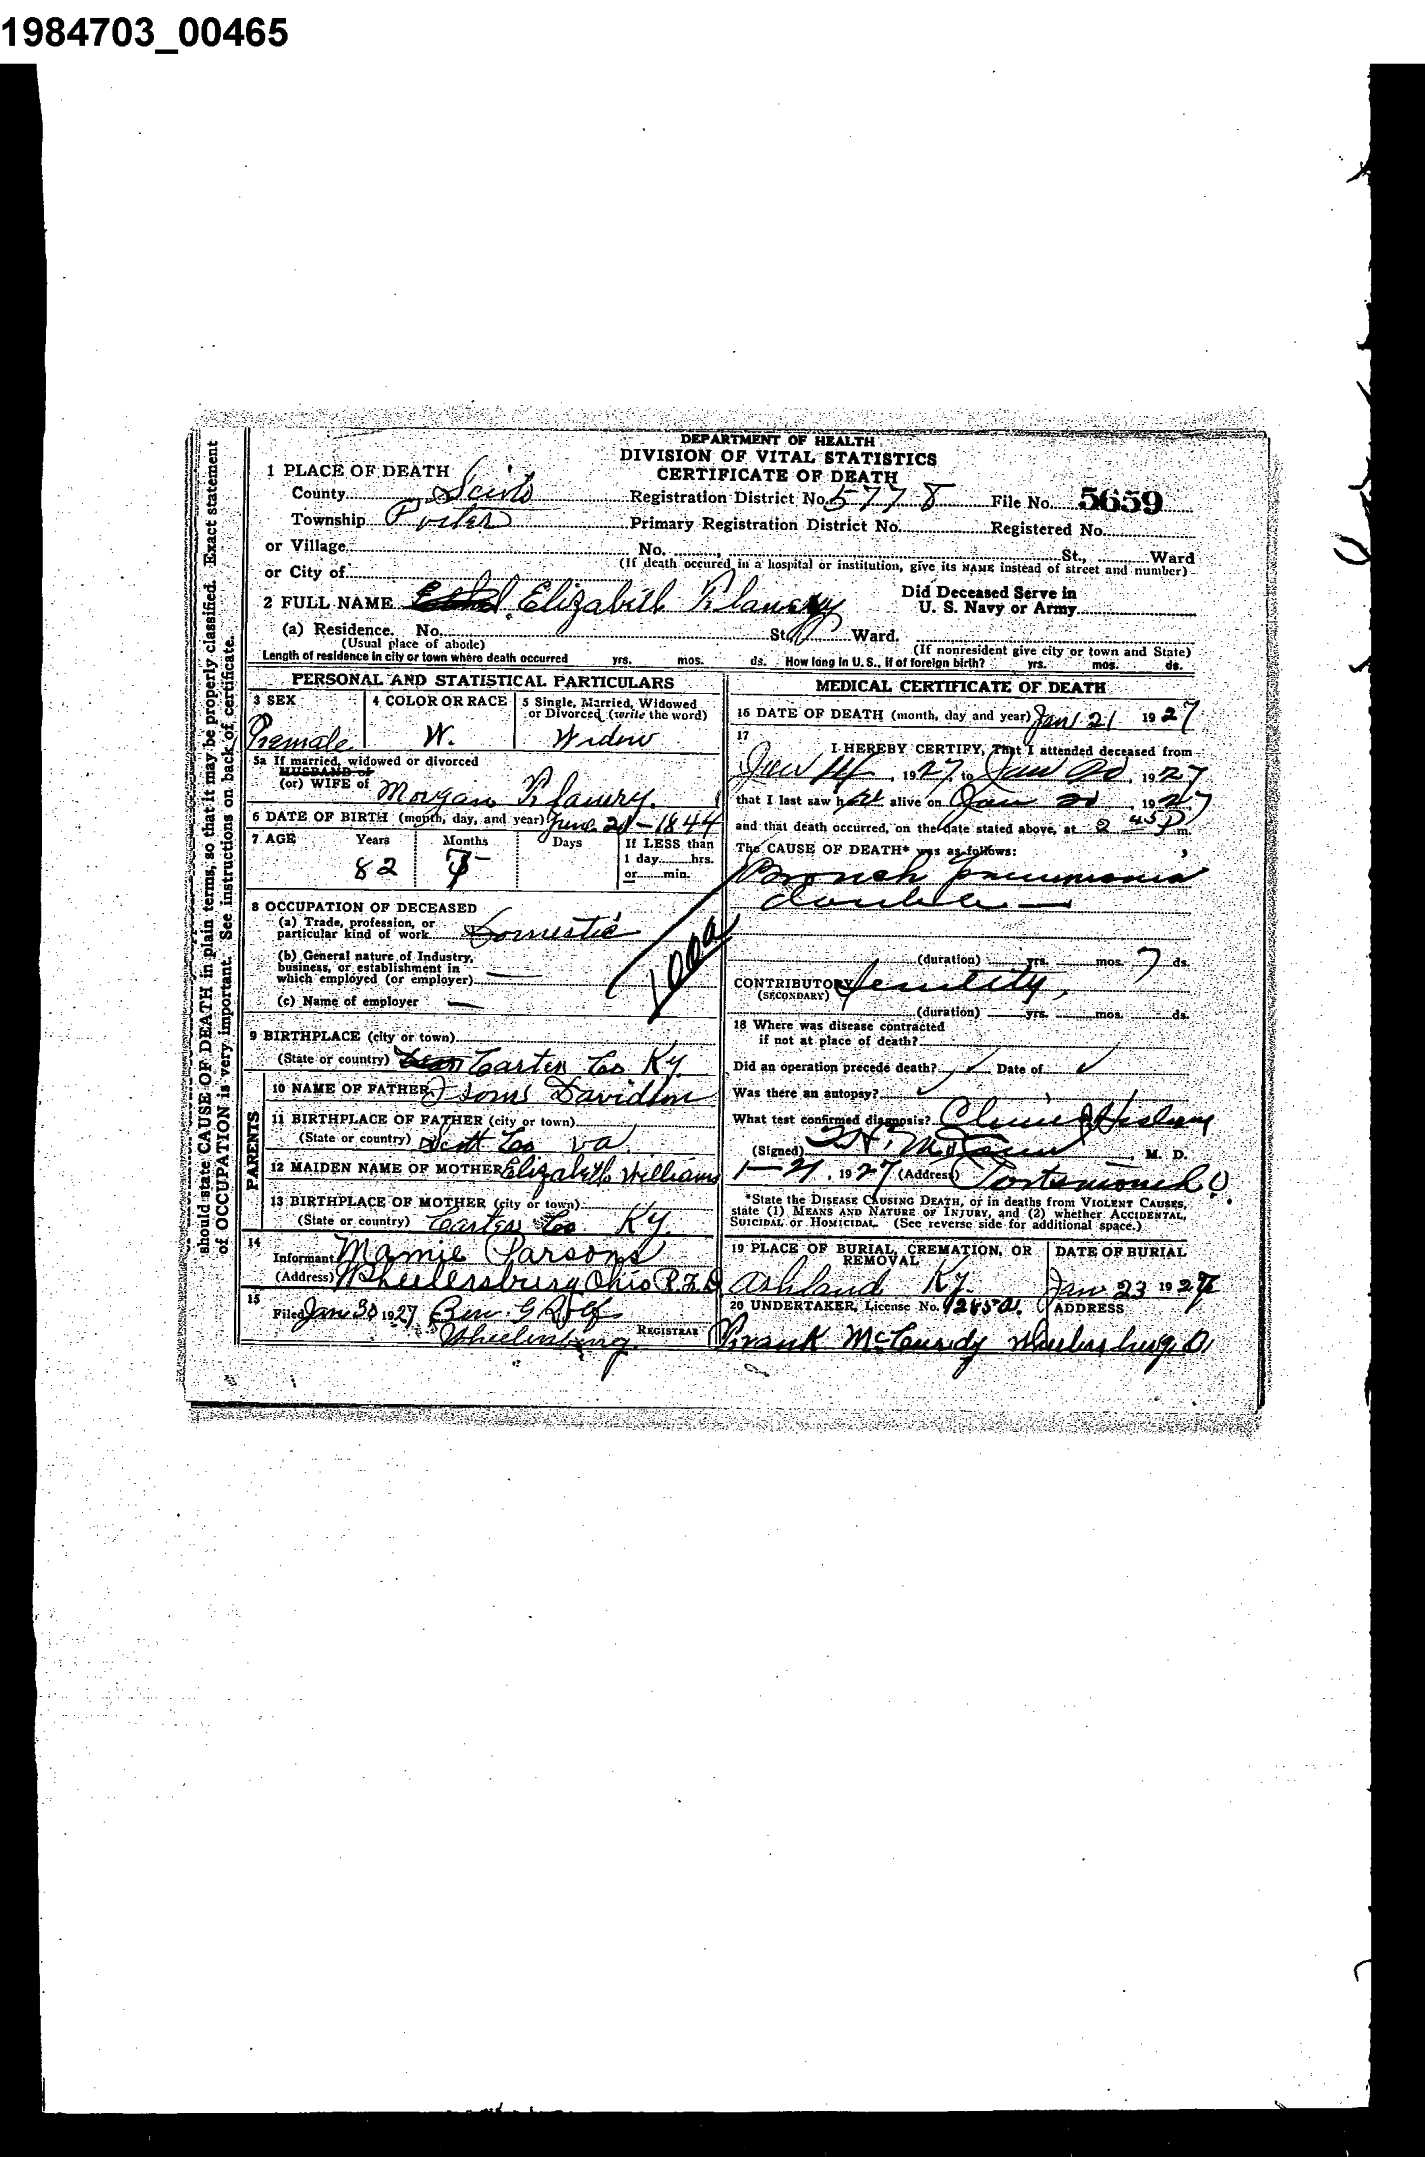 1984703_00465
DEPARTMENT OF HEALTH
DIVISION OF VITAL STATISTICS
CERTIFICATE OF DEATH
1 PLACE OF DEATH
County Scioto Registration District No. 577 8 File No. 5659
Township Porter Primary Registration District No. Registered No.
or Village No. St., Ward
(If death occured in a hospital or institution, give its NAME instead of street and number)
or City of
2 FULL NAME Elizabeth Flaugry
Did Deceased Serve in
U. S. Navy or Army
(a) Residence. No. St. Ward.
(Usual place of abode) (If nonresident give city or town and State)
Length of residence in city or town where death occurred yrs. mos. ds. How long in U. S., if of foreign birth? yrs. mos. ds.
PERSONAL AND STATISTICAL PARTICULARS
3 SEX
Female
4 COLOR OR RACE
W.
5 Single, Married, Widowed
or Divorced (write the word)
Widow
5a If married, widowed or divorced
HUSBAND of
(or) WIFE of Morgan Flaugry.
6 DATE OF BIRTH (month, day, and year) June 20 - 1844
7 AGE Years Months Days If LESS than
1 day hrs.
or min.
82 7
8 OCCUPATION OF DECEASED
(a) Trade, profession, or
particular kind of work Domestic
(b) General nature of Industry,
business, or establishment in
which employed (or employer)
(c) Name of employer
9 BIRTHPLACE (city or town)
(State or country) Carter Co Ky.
PARENTS
10 NAME OF FATHER Davidson
11 BIRTHPLACE OF FATHER (city or town)
(State or country) Scott Co Va
12 MAIDEN NAME OF MOTHER Elizabeth Williams
13 BIRTHPLACE OF MOTHER (city or town)
(State or country) Carter Co Ky.
14
Informant Mamie Parsons
(Address) Wheelersburg Ohio R.F.D
15
Filed Jan 30 1927
Wheelersburg. REGISTRAR
MEDICAL CERTIFICATE OF DEATH
16 DATE OF DEATH (month, day and year) Jan 21 1927
17
I HEREBY CERTIFY, That I attended deceased from
Jan 14, 1927, to Jan 20, 1927
that I last saw her alive on Jan 20, 1927
and that death occurred, on the date stated above, at 2 45 P m.
The CAUSE OF DEATH* was as follows:
Bronch pneumonia
double
(duration) yrs. mos. 7 ds.
CONTRIBUTORY Senility,
(SECONDARY)
(duration) yrs. mos. ds.
18 Where was disease contracted
if not at place of death?
Did an operation precede death? Date of
Was there an autopsy?
What test confirmed diagnosis?
(Signed) M. D.
1-21, 1927 (Address) Portsmouth O
*State the DISEASE CAUSING DEATH, or in deaths from VIOLENT CAUSES,
state (1) MEANS AND NATURE OF INJURY, and (2) whether ACCIDENTAL,
SUICIDAL or HOMICIDAL. (See reverse side for additional space.)
19 PLACE OF BURIAL, CREMATION, OR
REMOVAL
Ashland Ky.
DATE OF BURIAL
Jan 23 1927
20 UNDERTAKER, License No. 9285A. ADDRESS
Frank McCurdy Wheelersburg O
should state CAUSE OF DEATH in plain terms, so that it may be properly classified. Exact statement
of OCCUPATION is very important. See instructions on back of certificate.